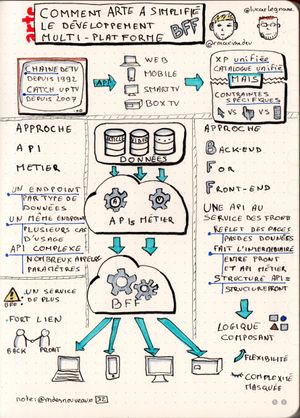 arte
COMMENT ARTE A SIMPLIFIÉ
LE DÉVELOPPEMENT
MULTI-PLATEFORME
BFF
@lucaslegname
CHAINE DE TV
DEPUIS 1992
CATCH UP TV
DEPUIS 2007
API
WEB
MOBILE
SMART TV
BOX TV
XP unifiée
CATALOGUE UNIFIÉ
MAIS
CONTRAINTES
SPÉCIFIQUES
VS
VS
APPROCHE
API
METIER
UN ENDPOINT
PAR TYPE DE
DONNÉES
UN MÊME ENDPOINT
PLUSIEURS CAS
D'USAGE
API COMPLEXE
NOMBREUX APPELS
PARAMÈTRES
BFF = UN SERVICE
DE PLUS
FORT LIEN
BACK
FRONT
DONNÉES
APIs MÉTIER
BFF
APPROCHE
BACK-END
FOR
FRONT-END
UNE API AU
SERVICE DES FRONT
REFLET DES PAGES
PAS DES DONNÉES
FAIT L'INTERMÉDIAIRE
ENTRE FRONT
ET API MÉTIER
STRUCTURE API =
STRUCTURE FRONT
LOGIQUE
COMPOSANT
FLEXIBILITÉ
COMPLEXITÉ
MASQUÉE